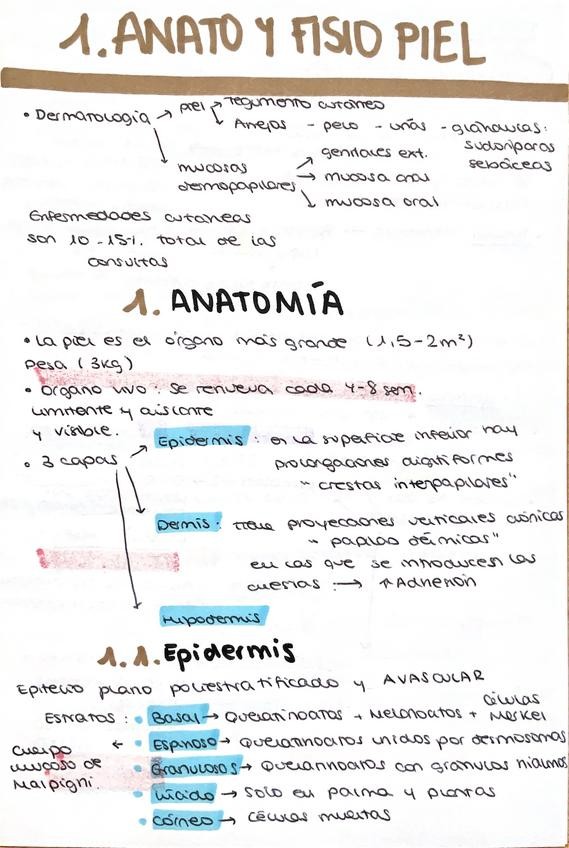 1. ANATO Y FISIO PIEL
• Dermatología → piel → Tegumento cutáneo
→ Anejos - pelo - uñas - glándulas:
sudoríparas
sebáceas
→ mucosas dermopapilares → genitales ext.
→ mucosa anal
→ mucosa oral
Enfermedades cutáneas
son 10 - 15 %. total de las
consultas
1. ANATOMÍA
• La piel es el órgano más grande (1,5-2m²)
Pesa (3kg)
• Órgano vivo: se renueva cada 4-8 sem.
limitante y aislante
y visible.
• 3 capas → Epidermis: en la superficie inferior hay
prolongaciones digitiformes
"crestas interpapilares"
→ Dermis: tiene proyecciones verticales cónicas
"papilas dérmicas"
en las que se introducen las
crestas: → ↑Adhesión
→ Hipodermis
1.1. Epidermis
Epitelio plano poliestratificado y AVASCULAR
Estratos: • Basal → Queratinocitos + Melanocitos + células Merkel
• Espinoso → Queratinocitos unidos por desmosomas
cuerpo mucoso de Malpigni. ←
• Granulosos → Queratinocitos con gránulos hialinos
• Lúcido → Solo en palma y plantas
• córneo → células muertas